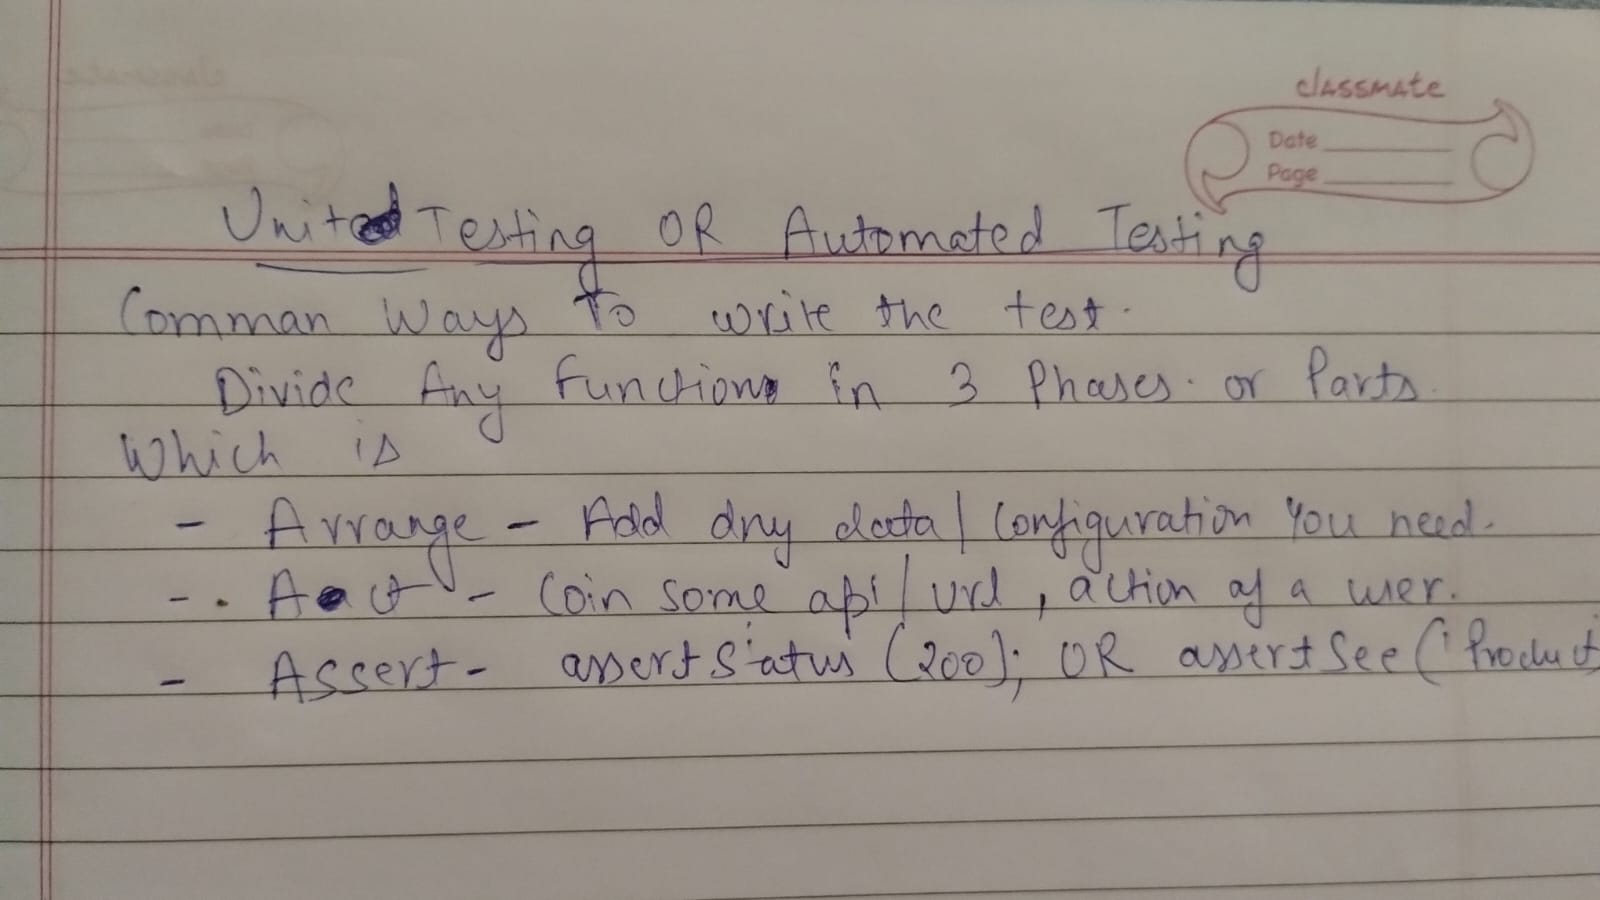 classmate
Date
Page
Unit Testing OR Automated Testing
Comman Ways To write the test.
Divide Any functions in 3 Phases. or Parts.
Which is
- Arrange - Add any data / Configuration You need.
- Act - Coin some api / url, action of a user.
- Assert - assertStatus (200); OR assertSee ('Product